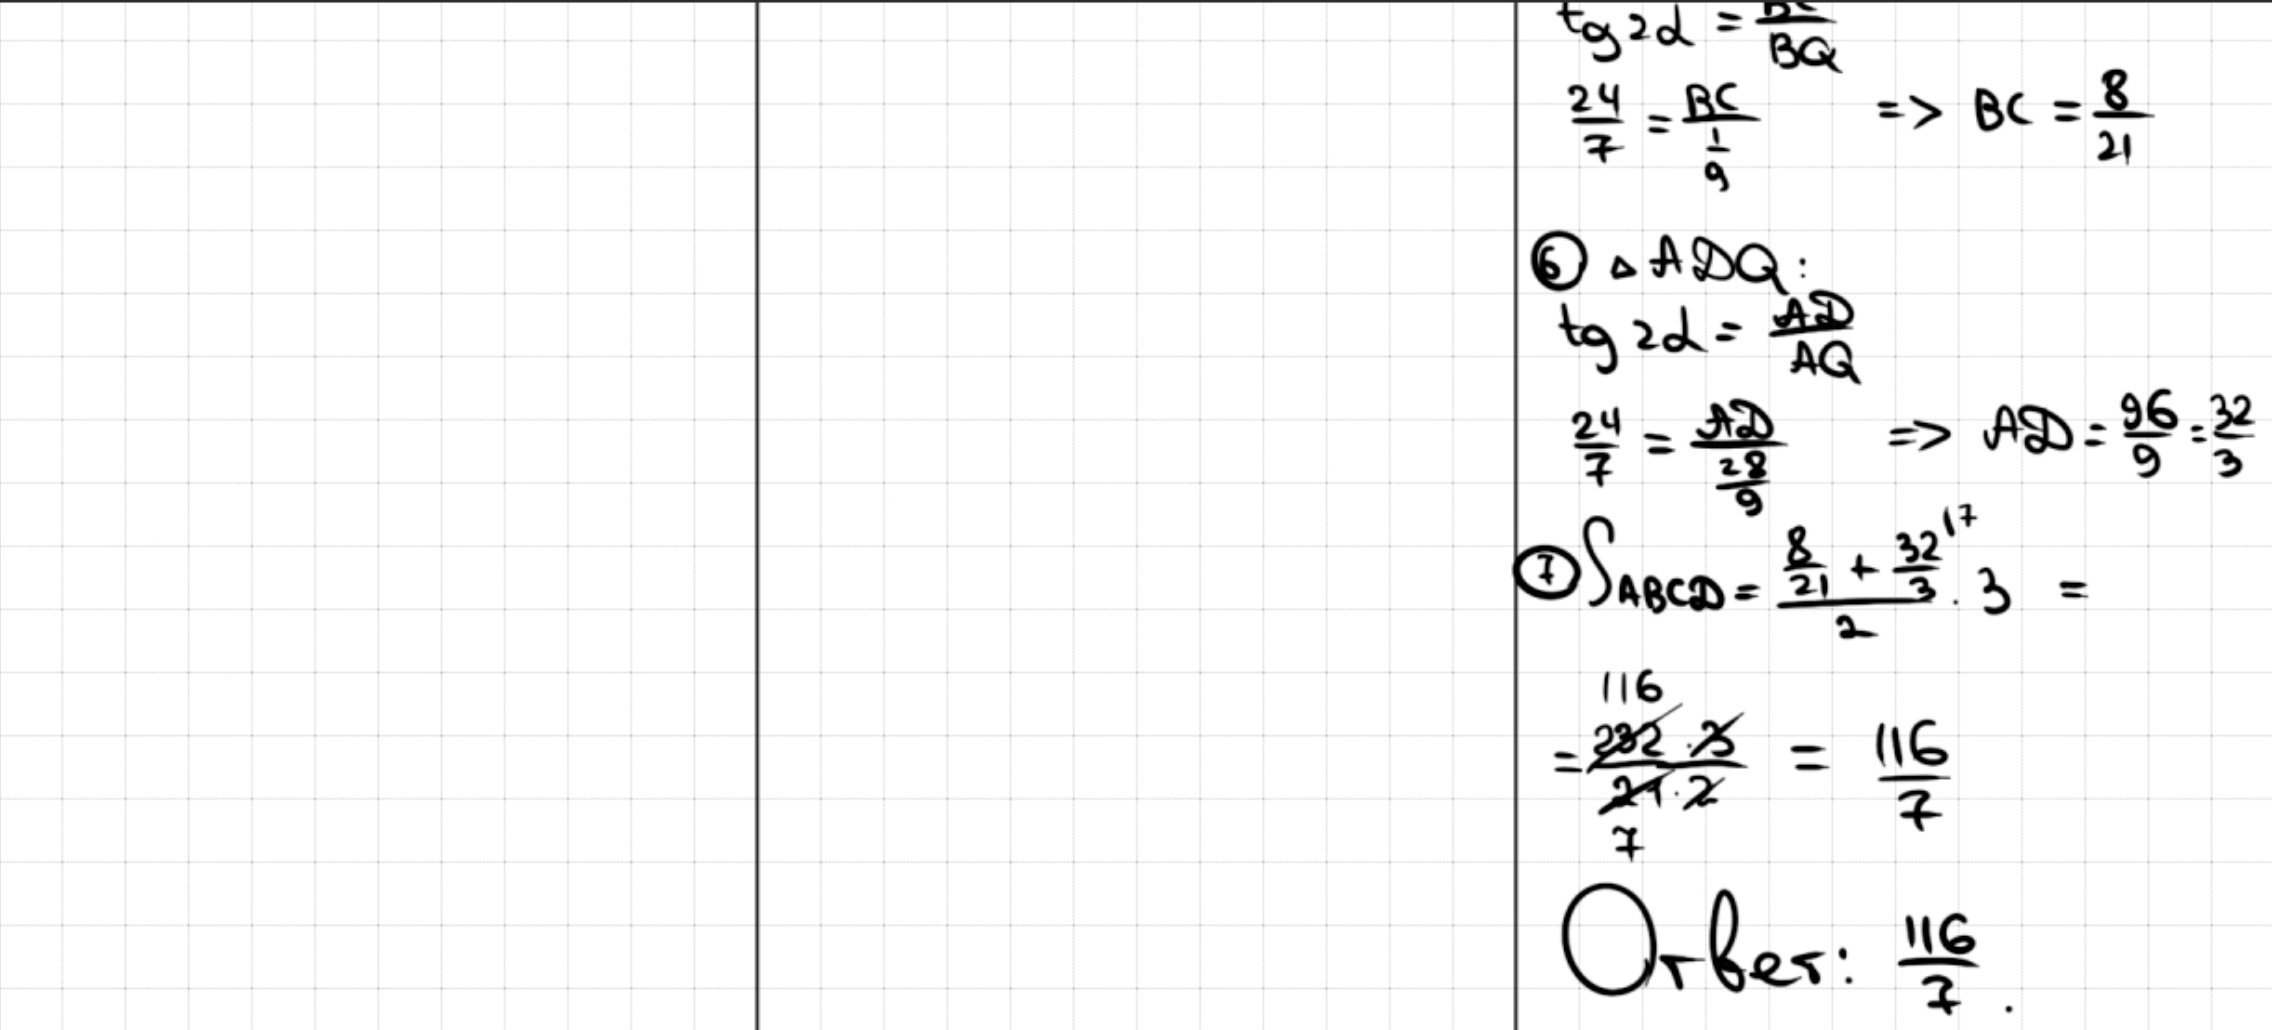 tg 2α = BC/BQ
24/7 = BC/(1/9) => BC = 8/21
⑥ △ADQ:
tg 2α = AD/AQ
24/7 = AD/(28/9) => AD = 96/9 = 32/3
⑦ S ABCD = (8/21 + 32/3 ^17)/2 · 3 =
116
= (232 · 3)/(21 · 2) = 116/7
7
Ответ: 116/7.